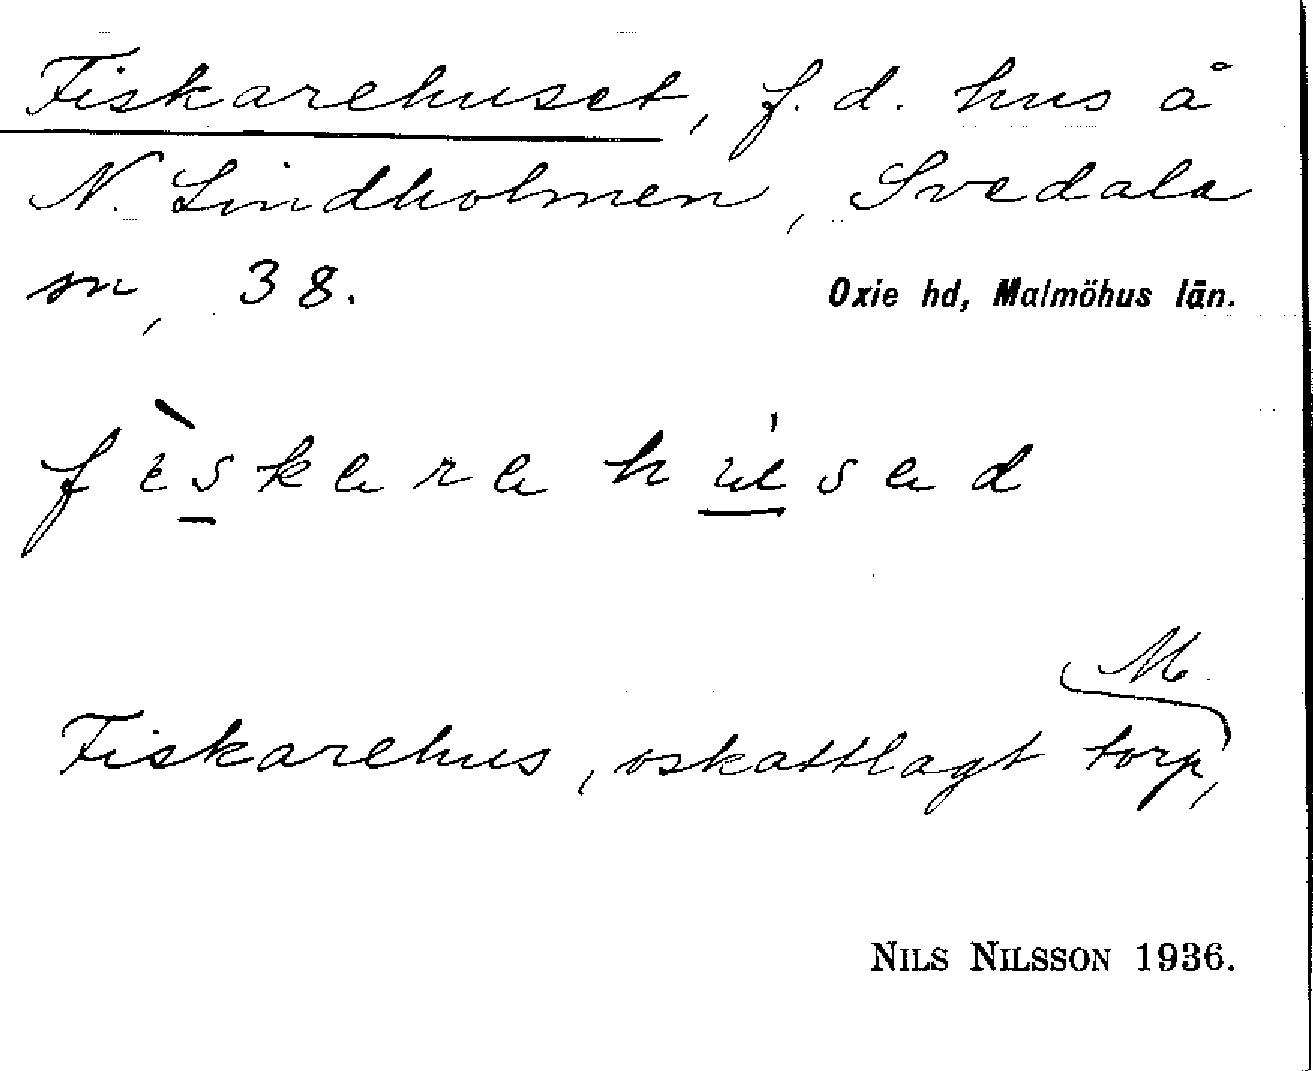 Fiskarehuset, f. d. hus å
N. Lindholmen, Svedala
sn, 38.
Oxie hd, Malmöhus län.
fèskara húsad
M.
Fiskarehus, oskattlagt torp,
NILS NILSSON 1936.